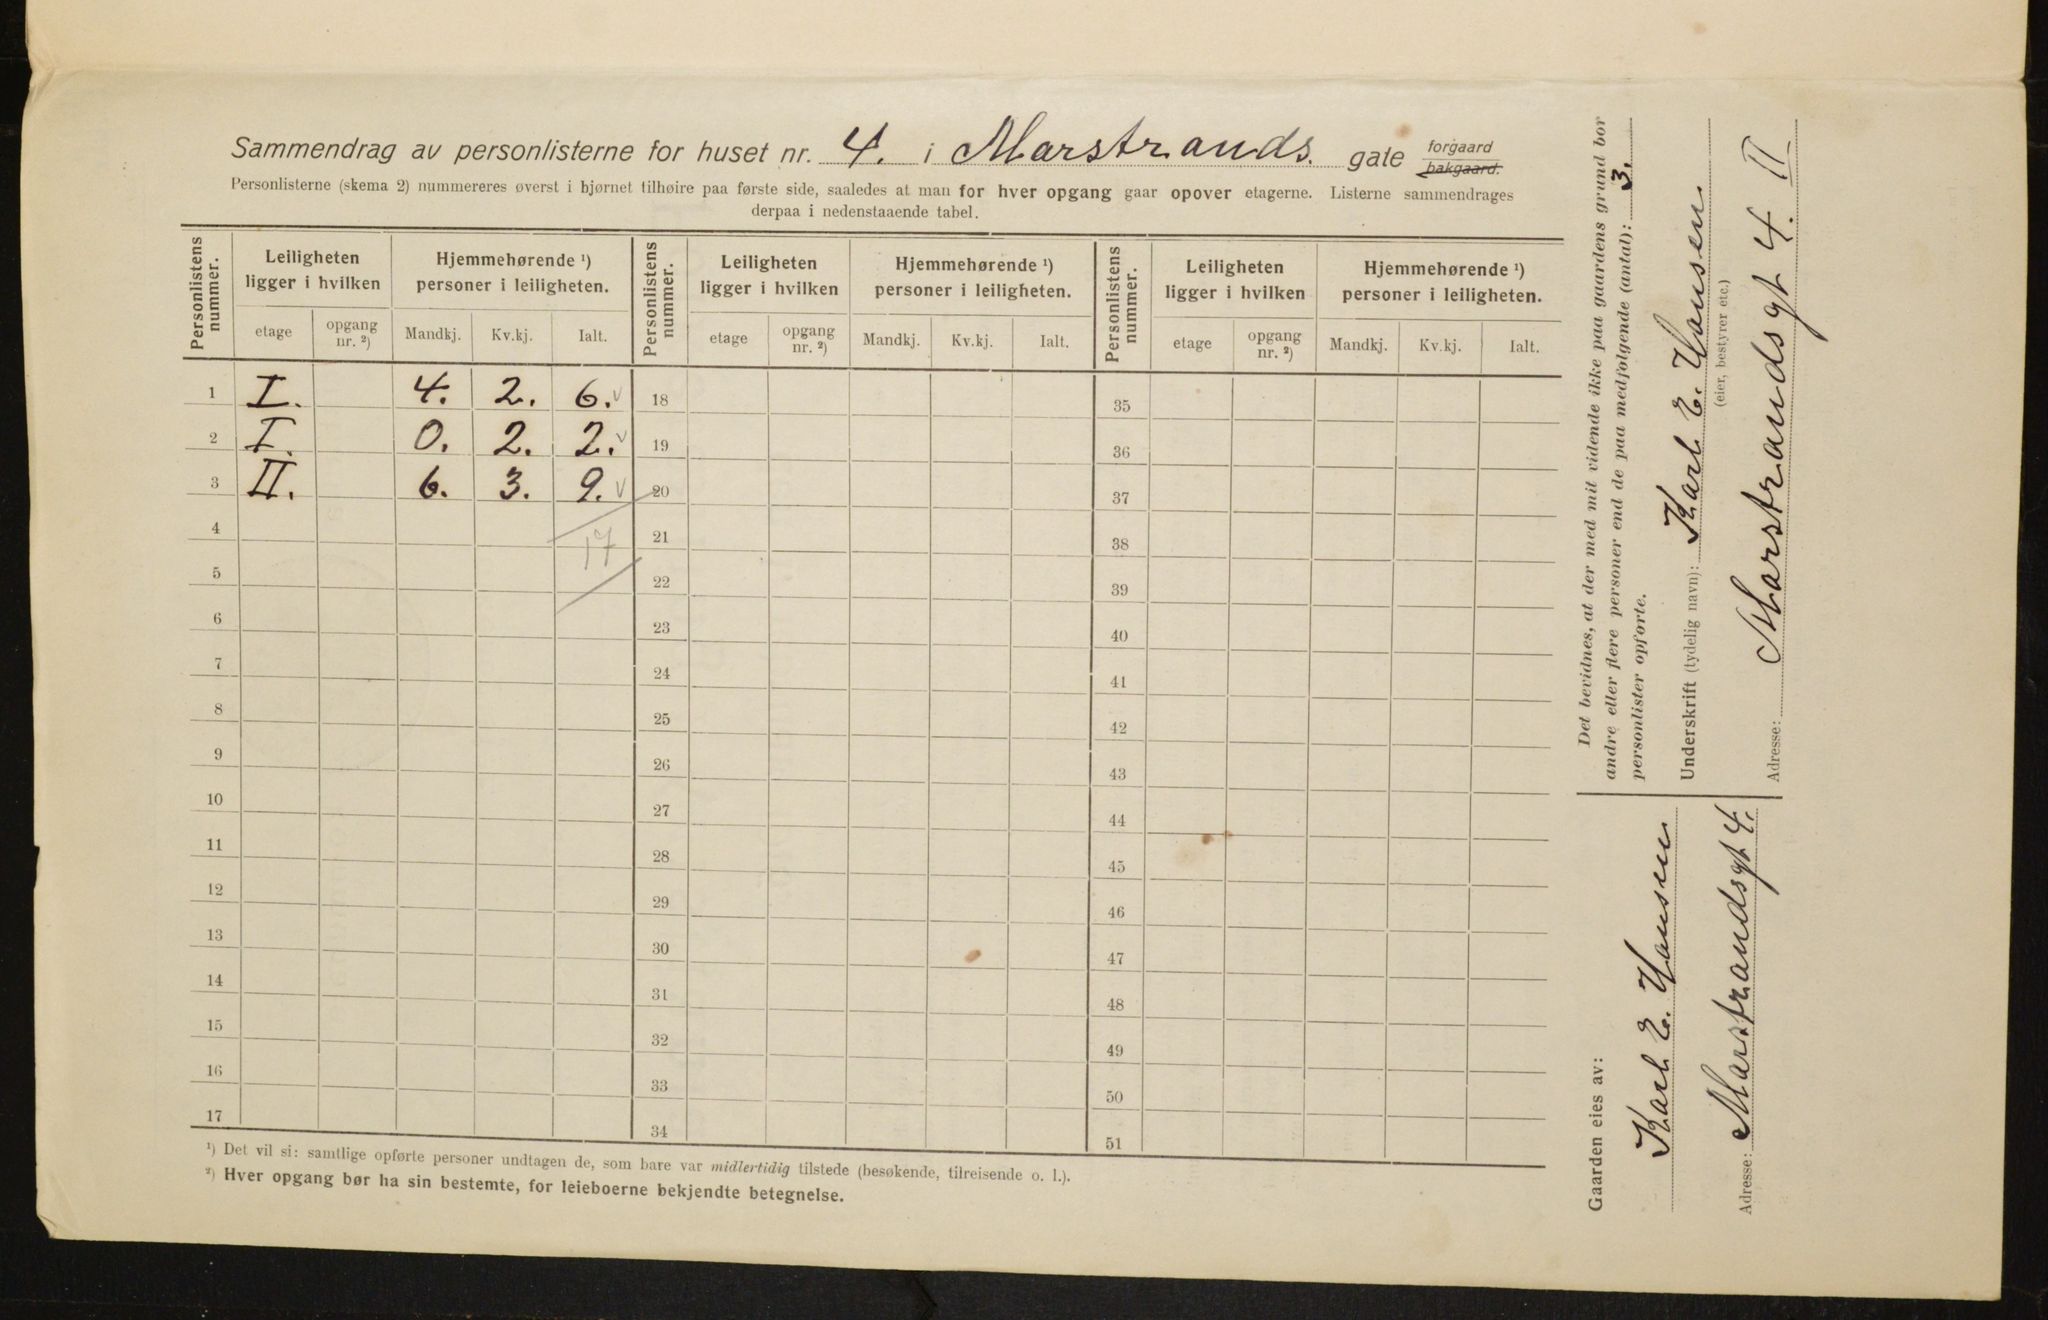 Sammendrag av personlisterne for huset nr. 4. i Marstrands. gate forgaard bakgaard.
Personlisterne (skema 2) nummereres øverst i hjørnet tilhøire paa første side, saaledes at man for hver opgang gaar opover etagerne. Listerne sammendrages
derpaa i nedenstaaende tabel.
Personlistens nummer. Leiligheten ligger i hvilken Hjemmehørende ¹) personer i leiligheten. Personlistens nummer. Leiligheten ligger i hvilken Hjemmehørende ¹) personer i leiligheten. Personlistens nummer. Leiligheten ligger i hvilken Hjemmehørende ¹) personer i leiligheten.
etage opgang nr. ²) Mandkj. Kv.kj. Ialt. etage opgang nr. ²) Mandkj. Kv.kj. Ialt. etage opgang nr. ²) Mandkj. Kv.kj. Ialt.
1 I. 4. 2. 6. v 18 35
2 I. 0. 2. 2. v 19 36
3 II. 6. 3. 9. v 20 37
4 17 21 38
5 22 39
6 23 40
7 24 41
8 25 42
9 26 43
10 27 44
11 28 45
12 29 46
13 30 47
14 31 48
15 32 49
16 33 50
17 34 51
¹) Det vil si: samtlige opførte personer undtagen de, som bare var midlertidig tilstede (besøkende, tilreisende o. l.).
²) Hver opgang bør ha sin bestemte, for leieboerne bekjendte betegnelse.
Det bevidnes, at der med mit vidende ikke paa gaardens grund bor
andre eller flere personer end de paa medfølgende (antal): 3.
personlister opførte.
Underskrift (tydelig navn): Karl E. Hansen
(eier, bestyrer etc.)
Adresse: Marstrandsgt 4. II
Gaarden eies av:
Karl E. Hansen
Adresse: Marstrandsgt 4.